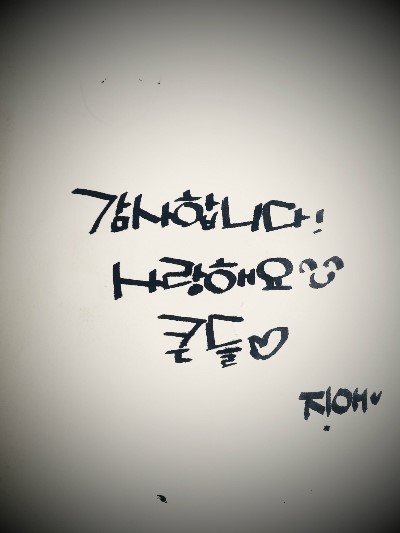 감사합니다!
사랑해요
큰들♡
지애